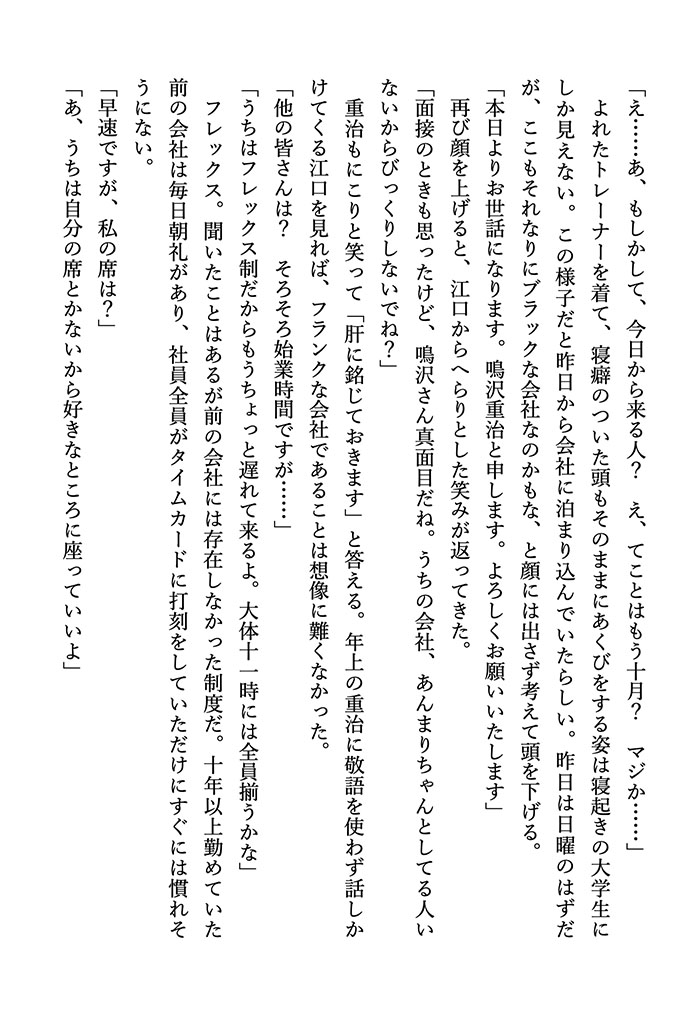 「え……あ、もしかして、今日から来る人？　え、てことはもう十月？　マジか……」
　よれたトレーナーを着て、寝癖のついた頭もそのままにあくびをする姿は寝起きの大学生に
しか見えない。この様子だと昨日から会社に泊まり込んでいたらしい。昨日は日曜のはずだ
が、ここもそれなりにブラックな会社なのかもな、と顔には出さず考えて頭を下げる。
「本日よりお世話になります。鳴沢重治と申します。よろしくお願いいたします」
　再び顔を上げると、江口からへらりとした笑みが返ってきた。
「面接のときも思ったけど、鳴沢さん真面目だね。うちの会社、あんまりちゃんとしてる人い
ないからびっくりしないでね？」
　重治もにこりと笑って「肝に銘じておきます」と答える。年上の重治に敬語を使わず話しか
けてくる江口を見れば、フランクな会社であることは想像に難くなかった。
「他の皆さんは？　そろそろ始業時間ですが……」
「うちはフレックス制だからもうちょっと遅れて来るよ。大体十一時には全員揃うかな」
　フレックス。聞いたことはあるが前の会社には存在しなかった制度だ。十年以上勤めていた
前の会社は毎日朝礼があり、社員全員がタイムカードに打刻をしていただけにすぐには慣れそ
うにない。
「早速ですが、私の席は？」
「あ、うちは自分の席とかないから好きなところに座っていいよ」